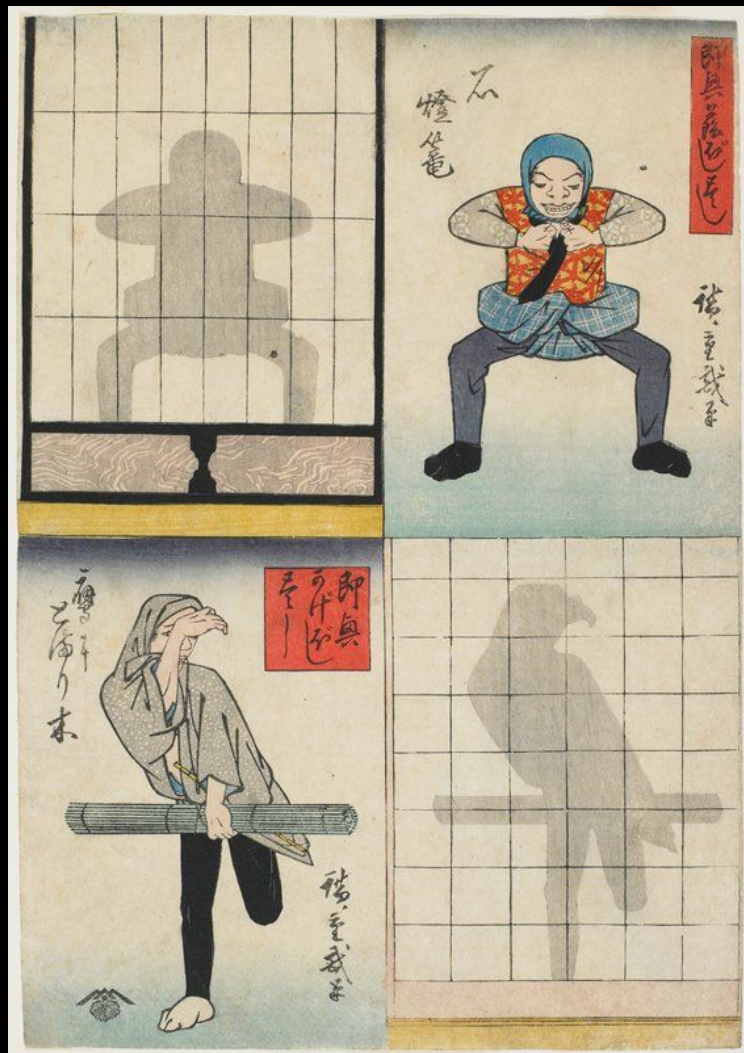 即興
蔭ぼし
尽し
石
燈篭
廣重戯筆
即興
かげぼし
尽し
鷹に
とまり木
廣重戯筆